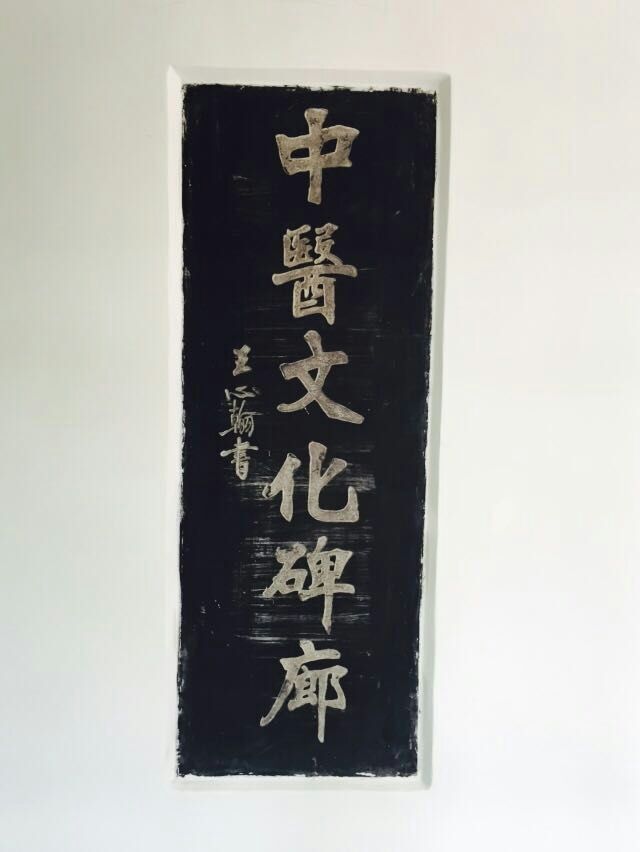 中醫文化碑廊
王心翰書